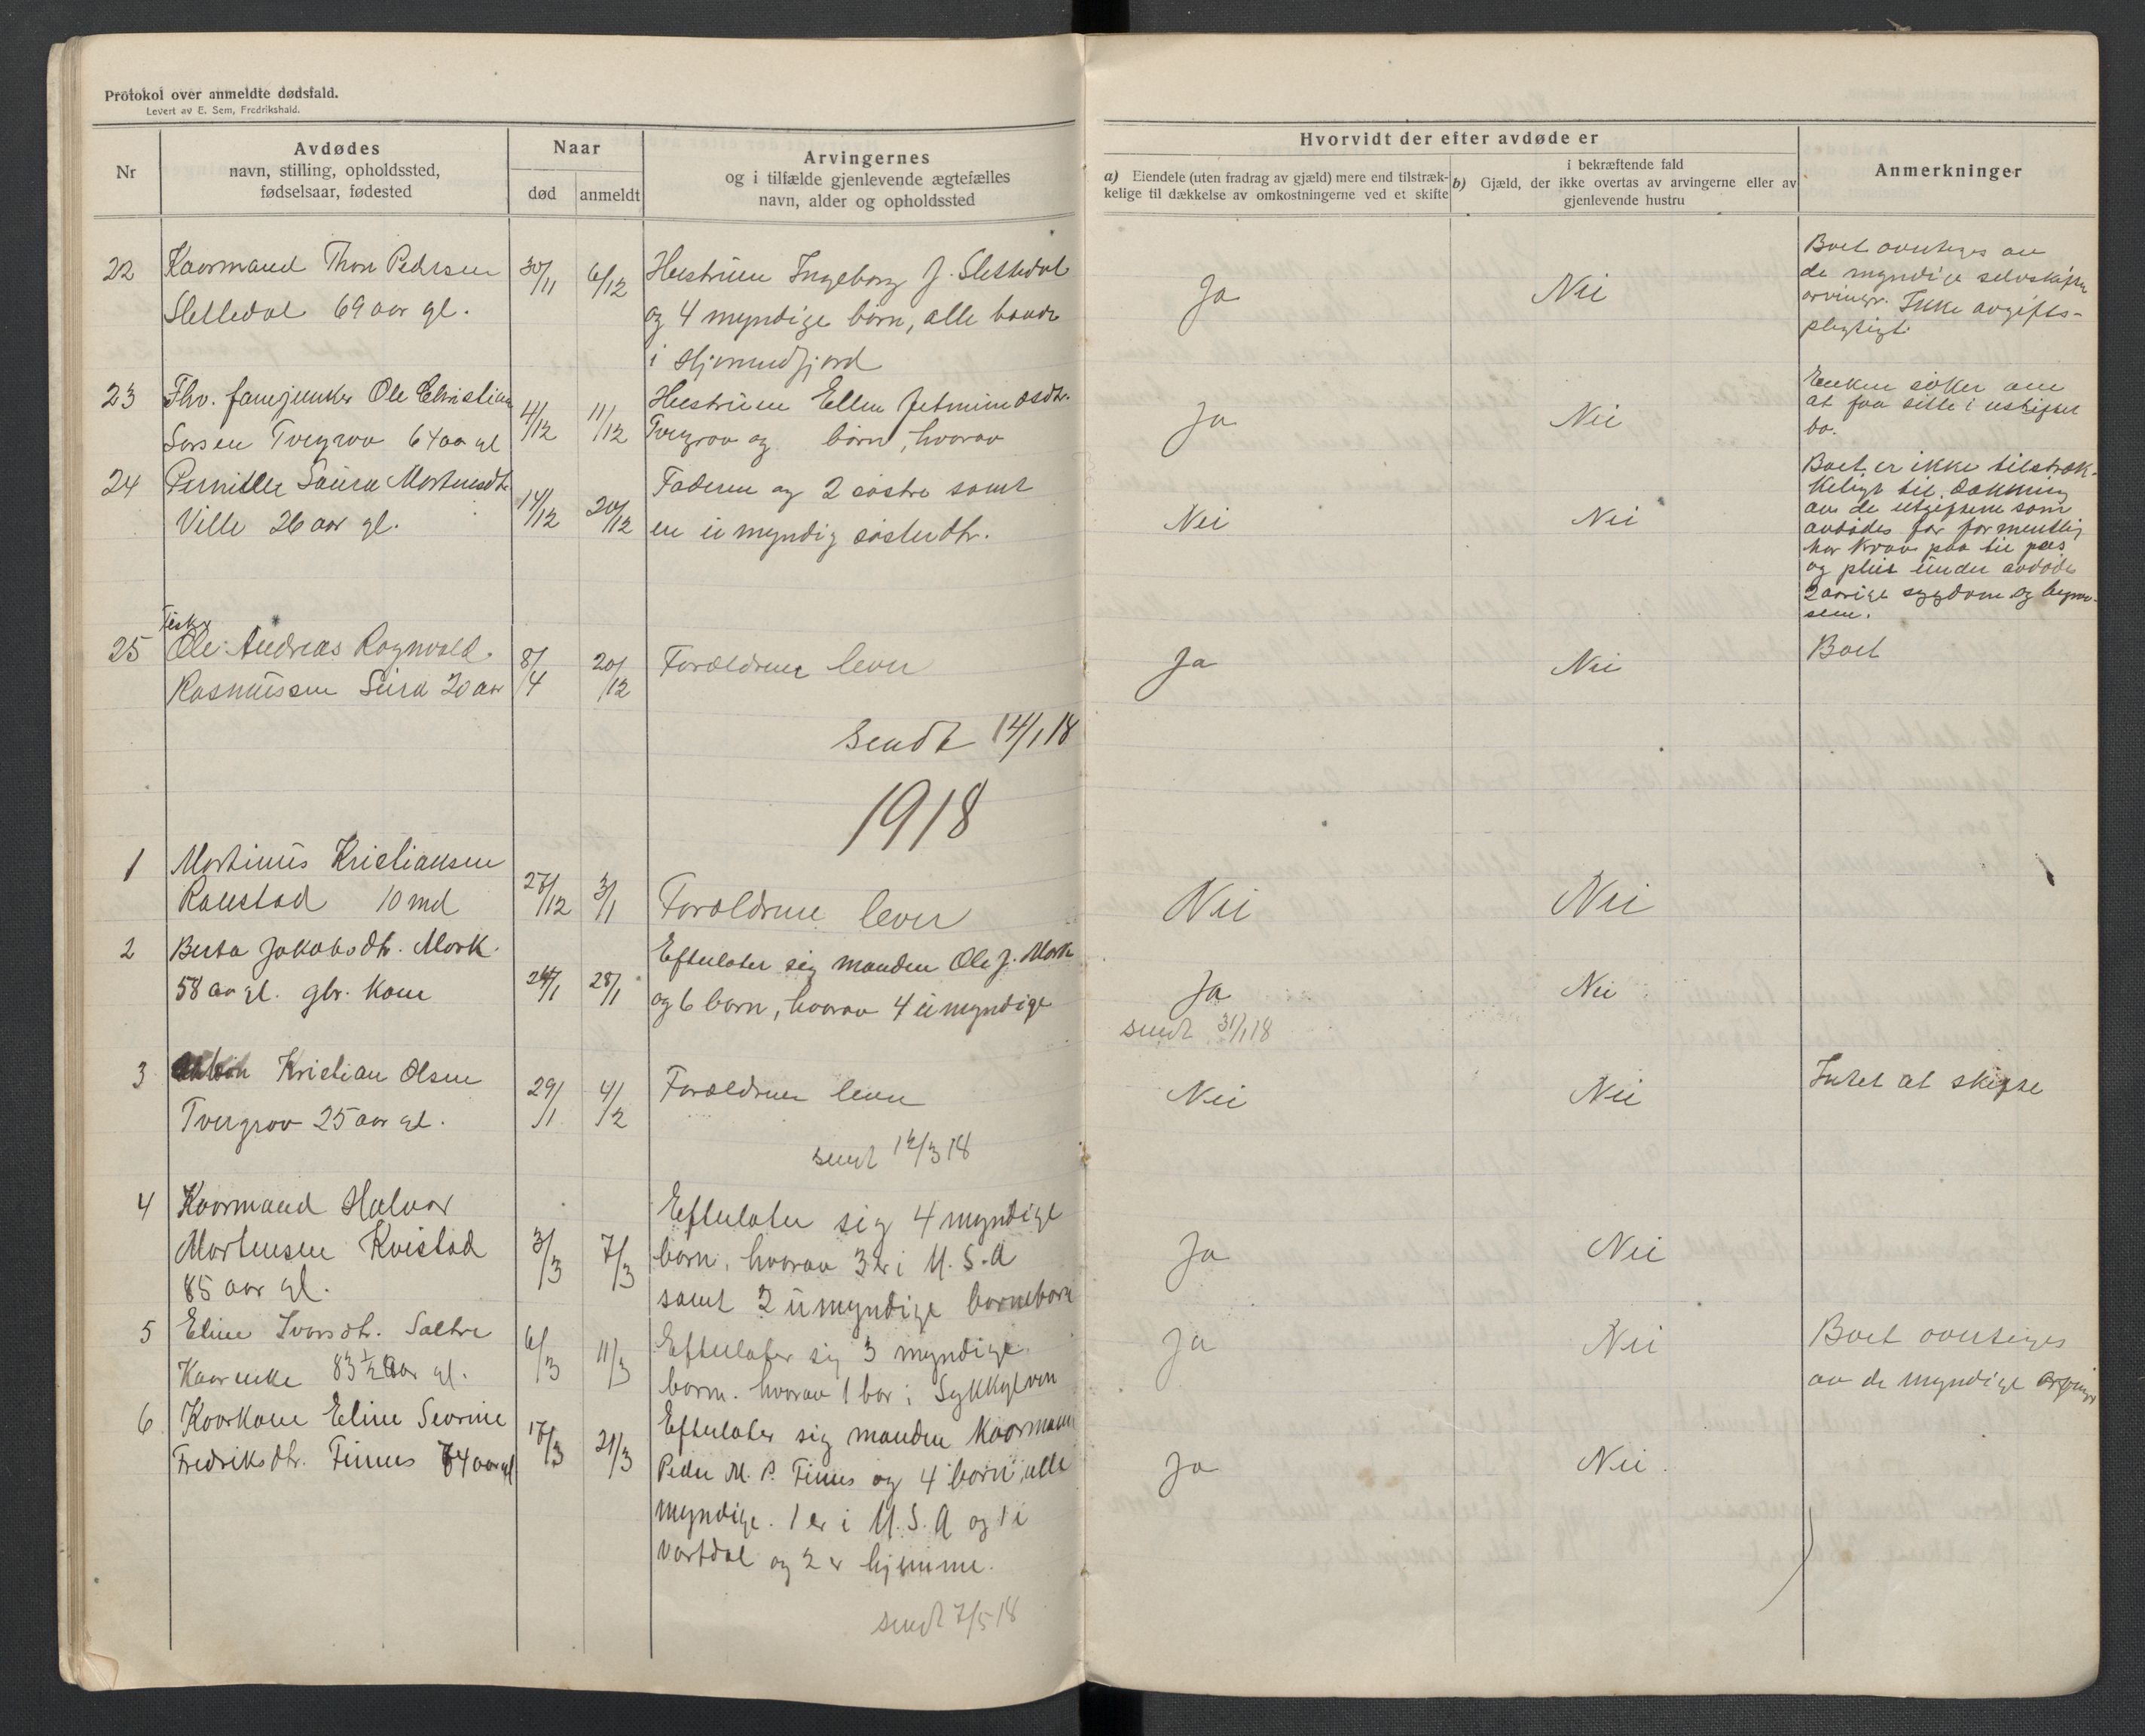 Protokol over anmeldte dødsfald.
Levert av E. Sem, Fredrikshald.
Nr
Avdødes
navn, stilling, opholdssted,
fødselsaar, fødested
Naar
død
anmeldt
Arvingernes
og i tilfælde gjenlevende ægtefælles
navn, alder og opholdssted
Hvorvidt der efter avdøde er
a) Eiendele (uten fradrag av gjæld) mere end tilstræk-
kelige til dækkelse av omkostningerne ved et skifte
i bekræftende fald
b) Gjæld, der ikke overtas av arvingerne eller av
gjenlevende hustru
Anmerkninger
22
Kaarmand Thore Pedersen
Slettedal 69 aar gl.
30/11
6/12
Hustruen Ingeborg J. Slettedal
og 4 myndige børn, alle
i Hjørundfjord
Ja
Nei
Boet overtages av
de myndige selvskiftende
arvinger. Ikke avgifts-
pligtigt.
23
Fhv. fanejunker Ole Christian
Larsen Tvergrov 64 aar gl
4/12
11/12
Hustruen Ellen Jetmundsdtr.
Tvergrov og børn, hvorav
Ja
Nei
Enken søker om
at faa sitte i uskiftet
bo.
24
Pernille Laura Martinsdtr.
Ville 26 aar gl.
14/12
20/12
Faderen og 2 søstre samt
en umyndig søsterdtr.
Nei
Nei
Boet er ikke tilstræk-
keligt til dækning
av de utgifterne som
avdødes far formentlig
har krav paa til pas
og pleie under avdødes
2 aarige sygdom og begravel-
sen.
25
Fisker
Ole Andreas Ragnvald
Rasmussen Leira 20 aar
8/4
20/12
Forældrene lever
Ja
Nei
Boet
Sendt 14/1 18
1918
1
Martinus Kristiansen
Ramstad 10 md
27/12
3/1
Forældrene lever
Nei
Nei
2
Berta Jakobsdtr. Mork.
58 aar gl. gbr. kone
24/1
28/1
Efterlater sig manden Ole J. Mork
og 6 børn, hvorav 4 umyndige
Ja
Nei
sendt 31/1 18
3
Kristian Olsen
Tvergrov 25 aar gl.
29/1
4/2
Forældrene lever
Nei
Nei
Intet at skifte
sendt 12/3 18
4
Kaarmand Halvor
Martensen Kvistad
85 aar gl.
3/3
7/3
Efterlater sig 4 myndige
børn, hvorav 3 er i U.S.A
samt 2 umyndige barnebarn
Ja
Nei
5
Eline Ivarsdtr. Sætre
Kaarenke 83 ½ aar gl.
6/3
11/3
Efterlater sig 3 myndige
barn. hvorav 1 bor i Sykkylven
Ja
Nei
Boet overtages
av de myndige arvinger
6
Kaarkone Eline Severine
Fredriksdtr. Finnes 74 aar gl
17/3
21/3
Efterlater sig manden Kaarmann
Peder M. P. Finnes og 4 børn alle
myndige. 1 er i U.S.A og 1 i
Vartdal og 2 er hjemme.
Ja
Nei
sendt 7/5 18